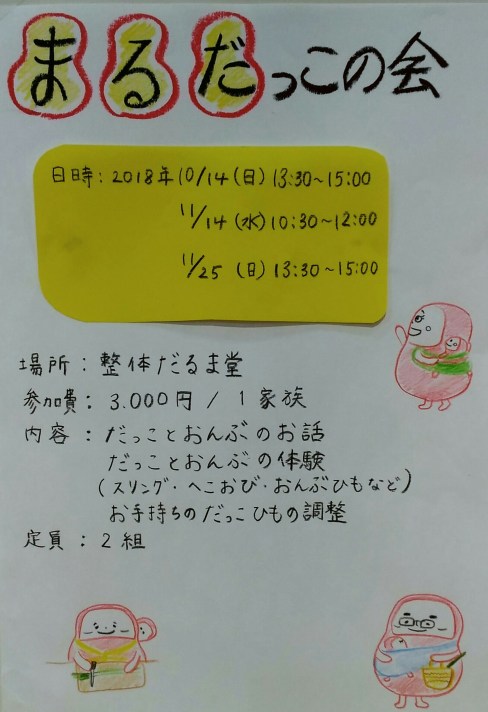 まるだっこの会
日時：2018年10/14（日）13:30～15:00
11/14（水）10:30～12:00
11/25（日）13:30～15:00
場所：整体だるま堂
参加費：3.000円 / 1家族
内容：だっことおんぶのお話
だっことおんぶの体験
（スリング・へこおび・おんぶひもなど）
お手持ちのだっこひもの調整
定員：2組